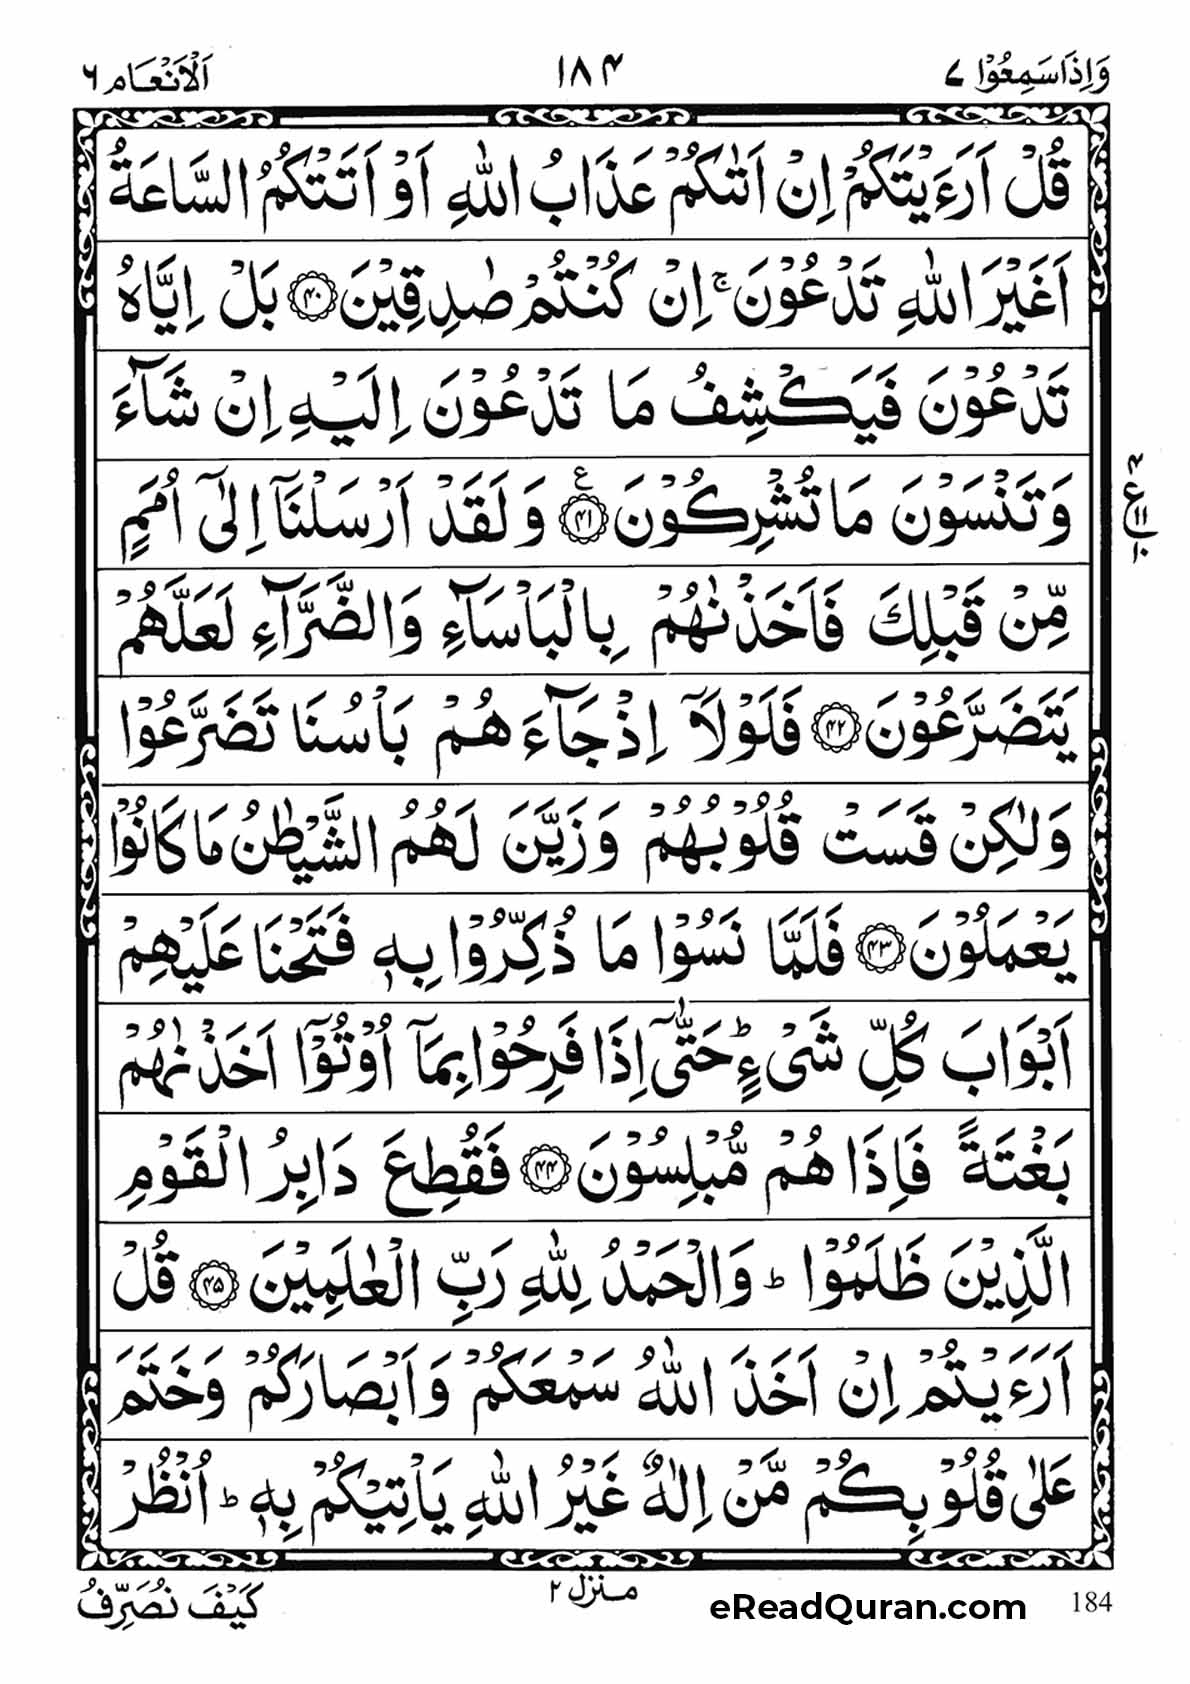 وَاِذَا سَمِعُوْا ۷
۱۸۴
اَلْاَنْعَام ۶
قُلْ اَرَءَيْتَكُمْ اِنْ اَتٰىكُمْ عَذَابُ اللّٰهِ اَوْ اَتَتْكُمُ السَّاعَةُ
اَغَيْرَ اللّٰهِ تَدْعُوْنَ ۚ اِنْ كُنْتُمْ صٰدِقِيْنَ ۴۰ بَلْ اِيَّاهُ
تَدْعُوْنَ فَيَكْشِفُ مَا تَدْعُوْنَ اِلَيْهِ اِنْ شَآءَ
وَتَنْسَوْنَ مَا تُشْرِكُوْنَ ۴۱ ع وَلَقَدْ اَرْسَلْنَآ اِلٰٓى اُمَمٍ
مِّنْ قَبْلِكَ فَاَخَذْنٰهُمْ بِالْبَاْسَآءِ وَالضَّرَّآءِ لَعَلَّهُمْ
يَتَضَرَّعُوْنَ ۴۲ فَلَوْلَآ اِذْ جَآءَهُمْ بَاْسُنَا تَضَرَّعُوْا
وَلٰكِنْ قَسَتْ قُلُوْبُهُمْ وَزَيَّنَ لَهُمُ الشَّيْطٰنُ مَا كَانُوْا
يَعْمَلُوْنَ ۴۳ فَلَمَّا نَسُوْا مَا ذُكِّرُوْا بِهٖ فَتَحْنَا عَلَيْهِمْ
اَبْوَابَ كُلِّ شَىْءٍ ؕ حَتّٰٓى اِذَا فَرِحُوْا بِمَآ اُوْتُوْٓا اَخَذْنٰهُمْ
بَغْتَةً فَاِذَا هُمْ مُّبْلِسُوْنَ ۴۴ فَقُطِعَ دَابِرُ الْقَوْمِ
الَّذِيْنَ ظَلَمُوْا ؕ وَالْحَمْدُ لِلّٰهِ رَبِّ الْعٰلَمِيْنَ ۴۵ قُلْ
اَرَءَيْتُمْ اِنْ اَخَذَ اللّٰهُ سَمْعَكُمْ وَاَبْصَارَكُمْ وَخَتَمَ
عَلٰى قُلُوْبِكُمْ مَّنْ اِلٰهٌ غَيْرُ اللّٰهِ يَاْتِيْكُمْ بِهٖ ؕ اُنْظُرْ
كَيْفَ نُصَرِّفُ
منزل ۲
eReadQuran.com
184